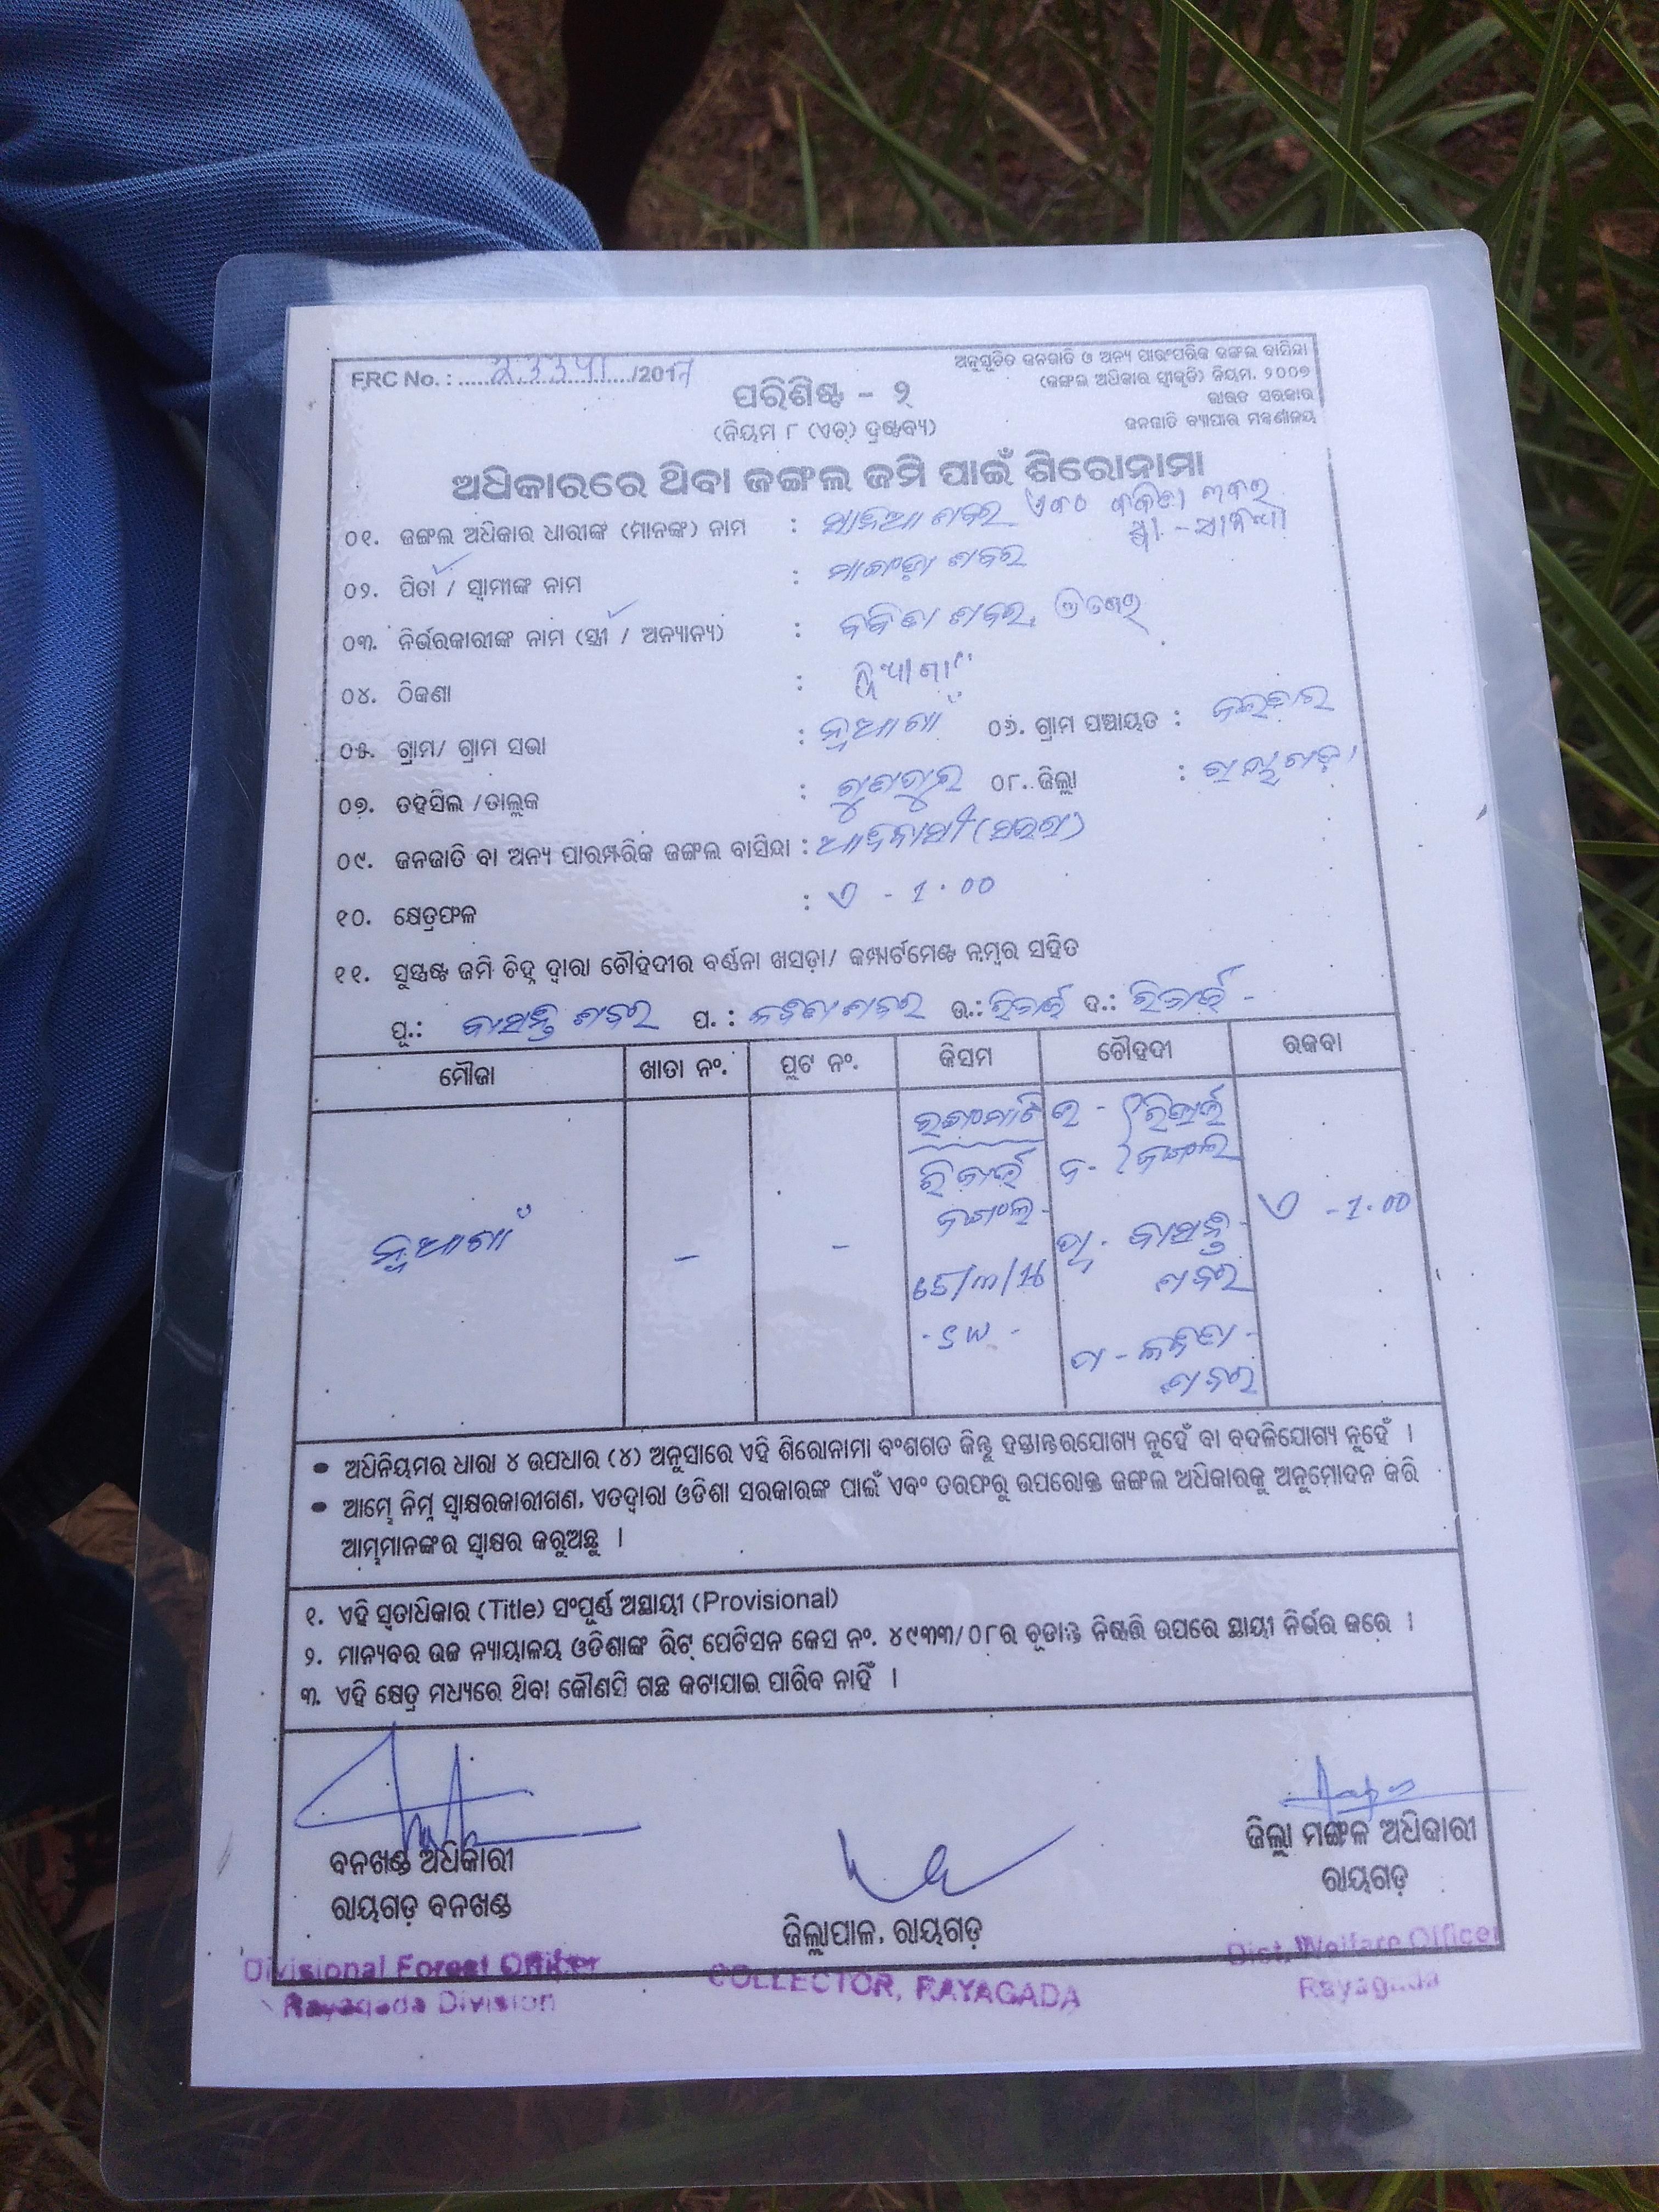 FRC No. : ............/2017
ଅନୁସୂଚିତ ଜନଜାତି ଓ ଅନ୍ୟ ପାରଂପରିକ ଜଙ୍ଗଲ ବାସିନ୍ଦା
(ଜଙ୍ଗଲ ଅଧିକାର ସ୍ୱୀକୃତି) ନିୟମ. ୨୦୦୭
ଭାରତ ସରକାର
ଜନଜାତି ବ୍ୟାପାର ମନ୍ତ୍ରଣାଳୟ
ପରିଶିଷ୍ଟ - ୨
(ନିୟମ ୮ (ଏଚ୍) ଦ୍ରଷ୍ଟବ୍ୟ)
ଅଧିକାରରେ ଥିବା ଜଙ୍ଗଲ ଜମି ପାଇଁ ଶିରୋନାମା
୦୧. ଜଙ୍ଗଲ ଅଧିକାର ଧାରୀଙ୍କ (ମାନଙ୍କ) ନାମ : ଶବର
୦୨. ପିତା / ସ୍ୱାମୀଙ୍କ ନାମ : ଶବର
୦୩. ନିର୍ଭରକାରୀଙ୍କ ନାମ (ସ୍ତ୍ରୀ / ଅନ୍ୟାନ୍ୟ) : ଶବର,
୦୪. ଠିକଣା : ନୂଆଗାଁ
୦୫. ଗ୍ରାମ/ ଗ୍ରାମ ସଭା : ନୂଆଗାଁ ୦୬. ଗ୍ରାମ ପଞ୍ଚାୟତ :
୦୭. ତହସିଲ /ତାଲୁକ : ଗୁଣୁପୁର ୦୮. ଜିଲ୍ଲା : ରାୟଗଡ଼ା
୦୯. ଜନଜାତି ବା ଅନ୍ୟ ପାରମ୍ପରିକ ଜଙ୍ଗଲ ବାସିନ୍ଦା : ଆଦିବାସୀ (ସଉରା)
୧୦. କ୍ଷେତ୍ରଫଳ : ଏ - 1.00
୧୧. ସୁସ୍ପଷ୍ଟ ଜମି ଚିହ୍ନ ଦ୍ୱାରା ଚୌହଦୀର ବର୍ଣ୍ଣନା ଖସଡ଼ା/ କମ୍ପାର୍ଟମେଣ୍ଟ ନମ୍ବର ସହିତ
ପୂ.: ବାସନ୍ତି ଶବର ପ. : ଶବର ଉ.: ରିଜର୍ଭ ଦ.: ରିଜର୍ଭ -
ମୌଜା ଖାତା ନଂ. ପ୍ଲଟ ନଂ. କିସମ ଚୌହଦୀ ରକବା
ଉ - ରିଜର୍ଭ
ରିଜର୍ଭ ଦ- ଜଙ୍ଗଲ
ଜଙ୍ଗଲ-
ନୂଆଗାଁ - - ପୂ. ବାସନ୍ତି ଏ -1.00
ଶବର
ପ -
ଶବର
• ଅଧିନିୟମର ଧାରା ୪ ଉପଧାର (୪) ଅନୁସାରେ ଏହି ଶିରୋନାମା ବଂଶଗତ କିନ୍ତୁ ହସ୍ତାନ୍ତରଯୋଗ୍ୟ ନୁହେଁ ବା ବଦଳିଯୋଗ୍ୟ ନୁହେଁ ।
• ଆମ୍ଭେ ନିମ୍ନ ସ୍ୱାକ୍ଷରକାରୀଗଣ, ଏତଦ୍ୱାରା ଓଡିଶା ସରକାରଙ୍କ ପାଇଁ ଏବଂ ତରଫରୁ ଉପରୋକ୍ତ ଜଙ୍ଗଲ ଅଧିକାରକୁ ଅନୁମୋଦନ କରି
ଆମ୍ଭମାନଙ୍କର ସ୍ୱାକ୍ଷର କରୁଅଛୁ ।
୧. ଏହି ସ୍ୱତାଧିକାର (Title) ସଂପୂର୍ଣ୍ଣ ଅସ୍ଥାୟୀ (Provisional)
୨. ମାନ୍ୟବର ଉଚ୍ଚ ନ୍ୟାୟାଳୟ ଓଡିଶାଙ୍କ ରିଟ୍ ପେଟିସନ କେସ ନଂ. ୪୯୩୩/୦୮ର ଚୂଡାନ୍ତ ନିଷ୍ପତ୍ତି ଉପରେ ସ୍ଥାୟୀ ନିର୍ଭର କରେ ।
୩. ଏହି କ୍ଷେତ୍ର ମଧ୍ୟରେ ଥିବା କୌଣସି ଗଛ କଟାଯାଇ ପାରିବ ନାହିଁ ।
ବନଖଣ୍ଡ ଅଧିକାରୀ
ରାୟଗଡ଼ ବନଖଣ୍ଡ
Divisional Forest Officer
Rayagada Division
ଜିଲ୍ଲାପାଳ, ରାୟଗଡ଼
COLLECTOR, RAYAGADA
ଜିଲ୍ଲା ମଙ୍ଗଳ ଅଧିକାରୀ
ରାୟଗଡ଼
Dist. Welfare Officer
Rayagada